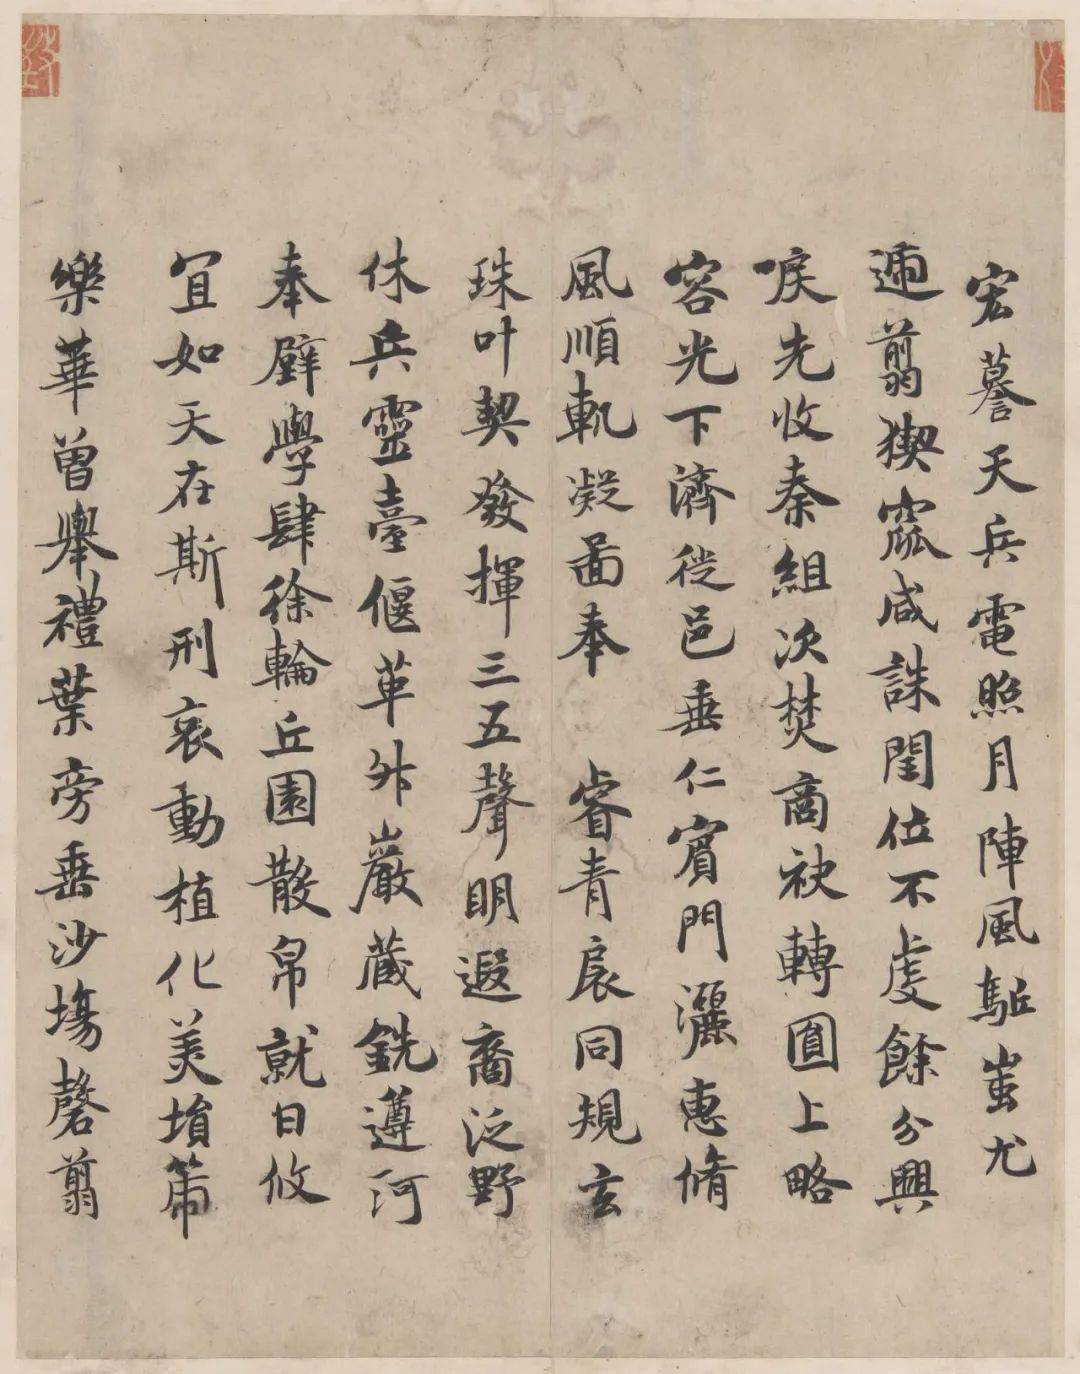 宏謩天兵電照月陣風駈蚩尤
翦猰窳咸誅閏位不虔餘分興
唳先收秦組次焚商袂轉圓上略
容光下濟従邑垂仁賓門灑惠脩
風順軌凝啚奉 睿青扆同規玄
珠叶契發揮三五聲明遐裔泛野
休兵靈臺偃革升巖藏銑遵河
奉璧學肆徐輪丘園散帛就日攸
宜如天在斯刑哀動植化美
樂華曽舉禮葉旁垂沙塲磬翦